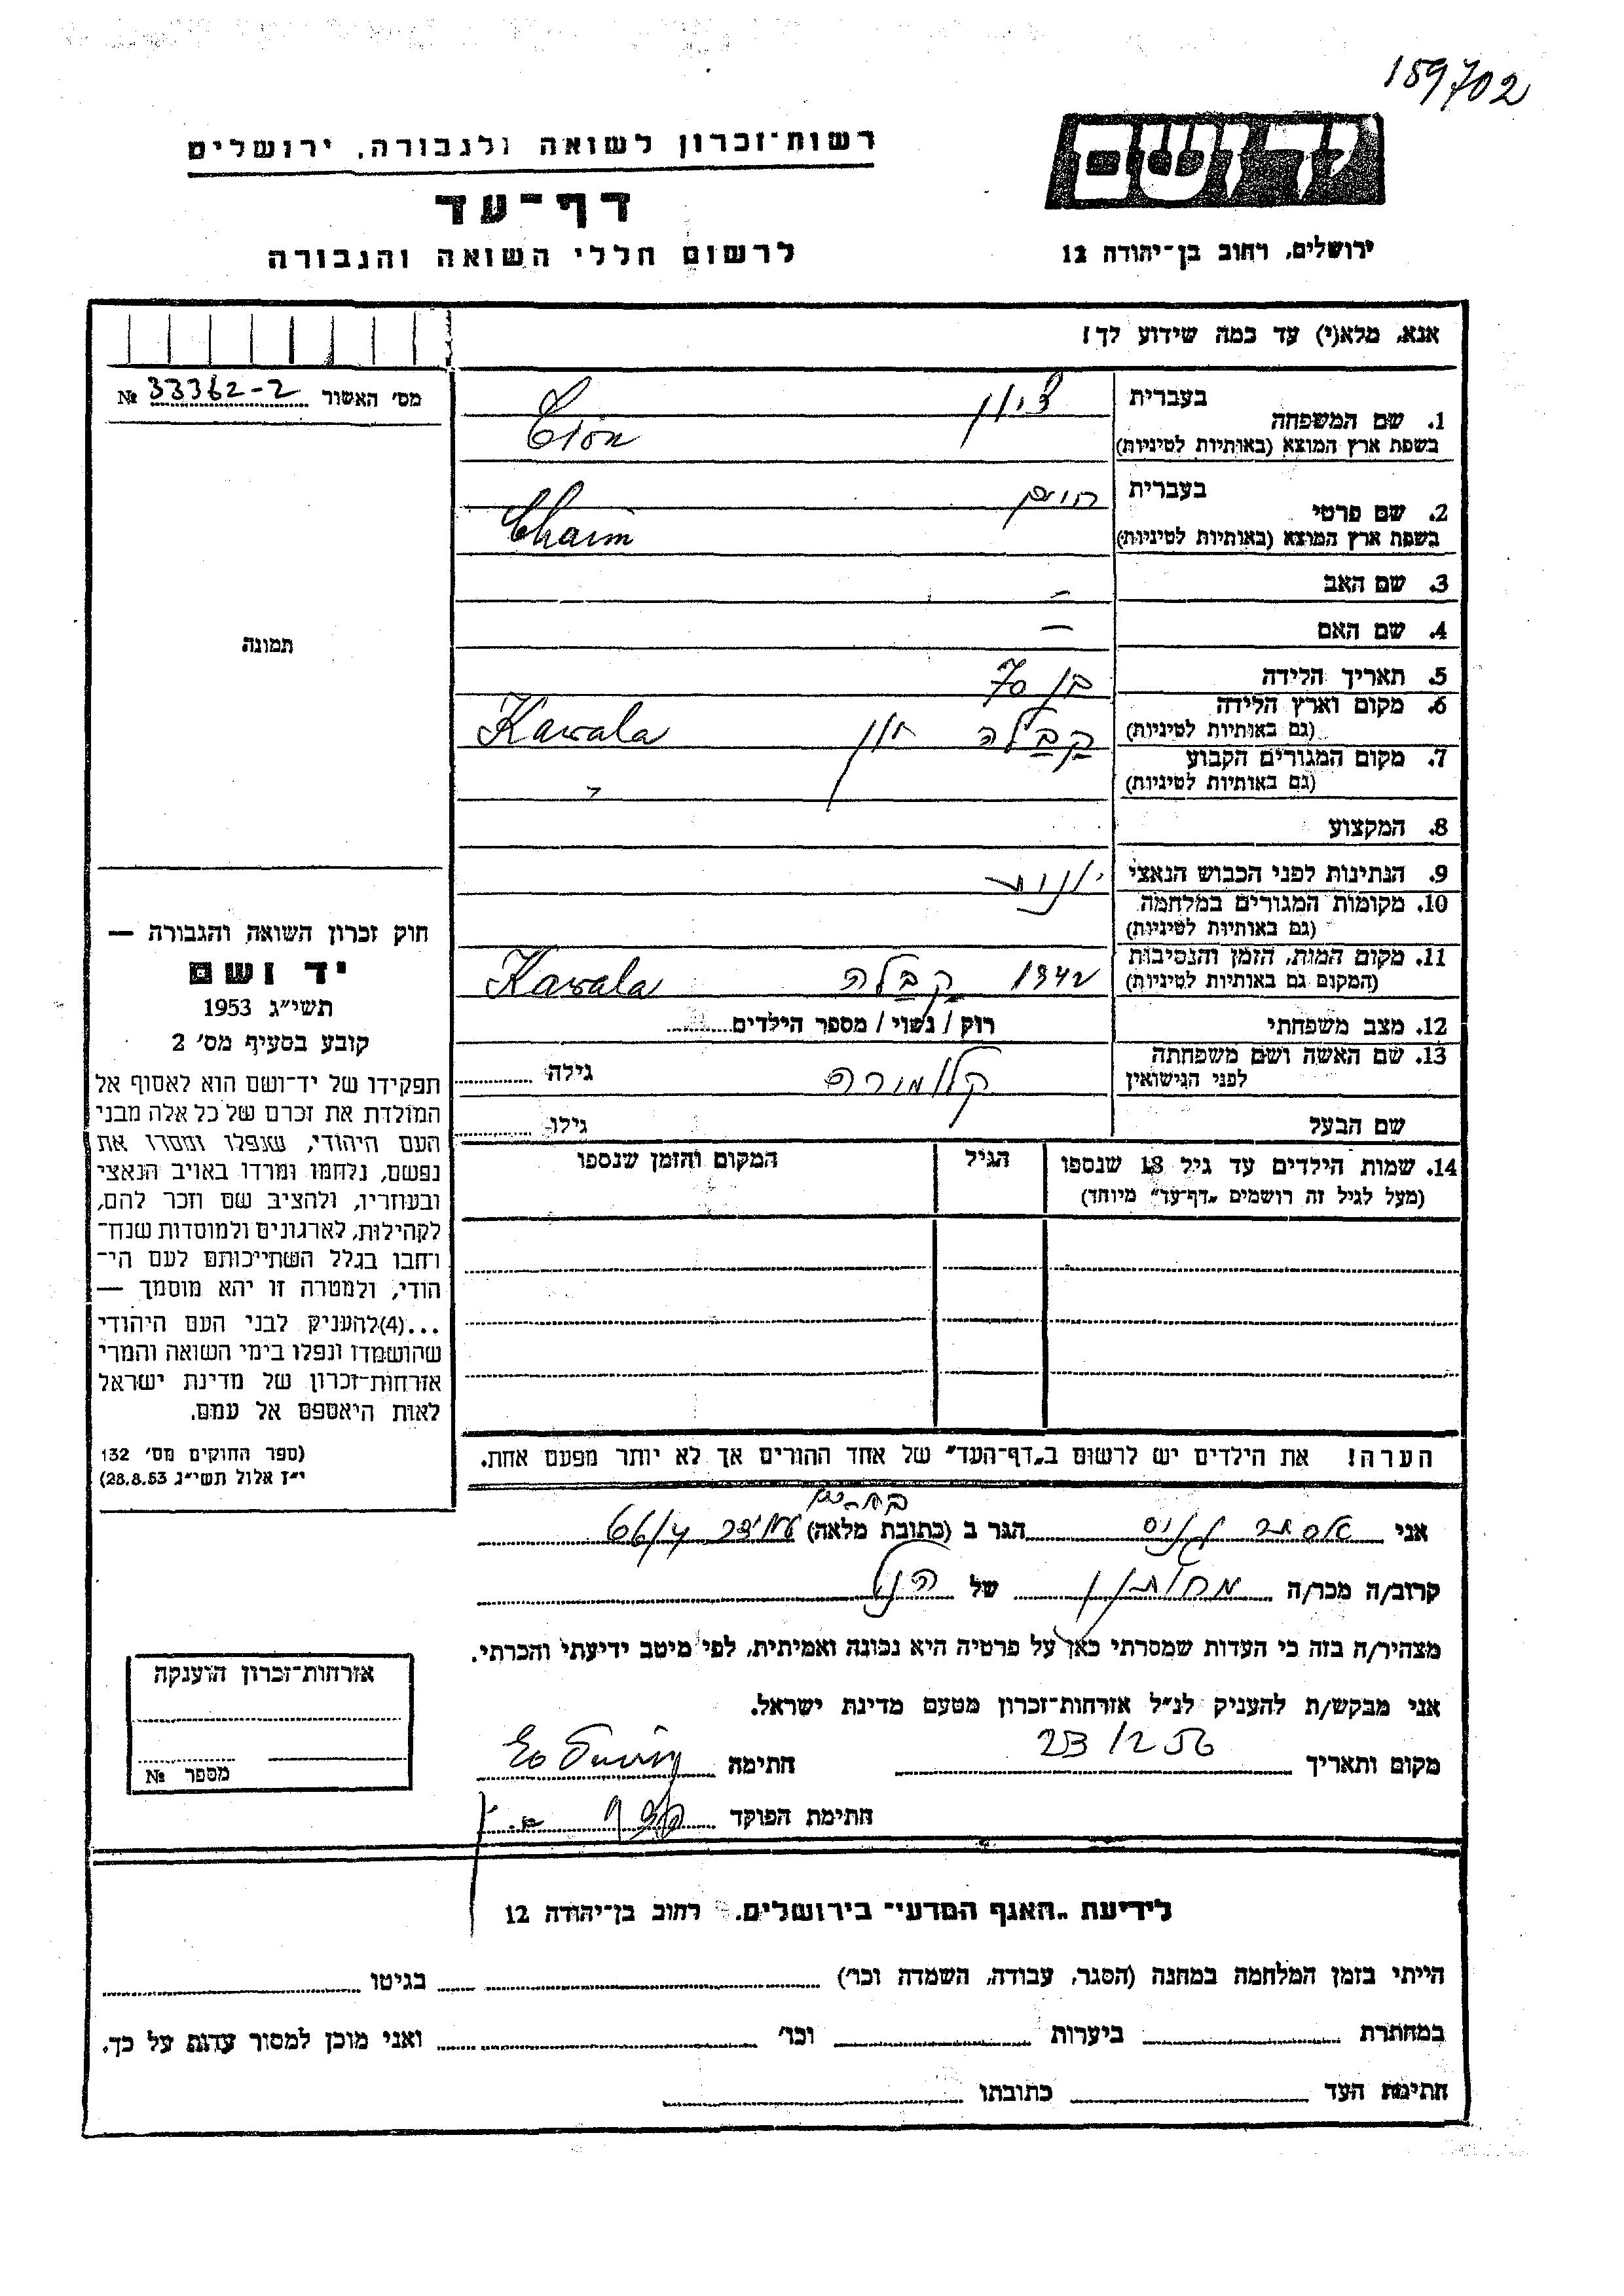 159702
רשות־זכרון לשואה ולגבורה, ירושלים
יד ושם
דף־עד
לרשום חללי השואה והגבורה
ירושלים, רחוב בן־יהודה 12
אנא, מלא(י) עד כמה שידוע לך!
מס׳ האשור № 33362-2
1. שם המשפחה בעברית ציון
בשפת ארץ המוצא (באותיות לטיניות) Cion
2. שם פרטי בעברית חיים
בשפת ארץ המוצא (באותיות לטיניות) Chaim
3. שם האב –
4. שם האם –
5. תאריך הלידה בן 70
6. מקום וארץ הלידה (גם באותיות לטיניות) קבלה יון Kawala
7. מקום המגורים הקבוע (גם באותיות לטיניות)
8. המקצוע
9. הנתינות לפני הכבוש הנאצי יונית
10. מקומות המגורים במלחמה (גם באותיות לטיניות)
11. מקום המות, הזמן והנסיבות (המקום גם באותיות לטיניות) 1942 קבלה Kawala
12. מצב משפחתי רוק / נשוי / מספר הילדים
13. שם האשה ושם משפחתה לפני הנישואין גילה
שם הבעל גילו
14. שמות הילדים עד גיל 18 שנספו
(מעל לגיל זה רושמים „דף־עד״ מיוחד)
הגיל
המקום והזמן שנספו
הערה! את הילדים יש לרשום ב„דף־העד״ של אחד ההורים אך לא יותר מפעם אחת.
תמונה
חוק זכרון השואה והגבורה —
יד ושם
תשי״ג 1953
קובע בסעיף מס׳ 2
תפקידו של יד־ושם הוא לאסוף אל
המולדת את זכרם של כל אלה מבני
העם היהודי, שנפלו ומסרו את
נפשם, נלחמו ומרדו באויב הנאצי
ובעוזריו, ולהציב שם וזכר להם,
לקהילות, לארגונים ולמוסדות שנח־
רחבו בגלל השתייכותם לעם הי־
הודי, ולמטרה זו יהא מוסמך —
...(4)להעניק לבני העם היהודי
שהושמדו ונפלו בימי השואה והמרי
אזרחות־זכרון של מדינת ישראל
לאות היאספם אל עמם.
(ספר החוקים מס׳ 132
י״ז אלול תשי״ג 28.8.53)
בת-ים
אני אסתר הגר ב (כתובת מלאה) 66/4
קרוב/ה מכר/ה מחותן של הנ״ל
מצהיר/ה בזה כי העדות שמסרתי כאן על פרטיה היא נכונה ואמיתית, לפי מיטב ידיעתי והכרתי.
אני מבקש/ת להעניק לנ״ל אזרחות־זכרון מטעם מדינת ישראל.
מקום ותאריך 23/12 56 חתימה
חתימת הפוקד
אזרחות־זכרון הוענקה
מספר №
לידיעת „האגף המדעי״ בירושלים, רחוב בן־יהודה 12
הייתי בזמן המלחמה במחנה (הסגר, עבודה, השמדה וכו׳) בגיטו
במחתרת ביערות וכו׳ ואני מוכן למסור עדות על כך.
חתימת העד כתובתו